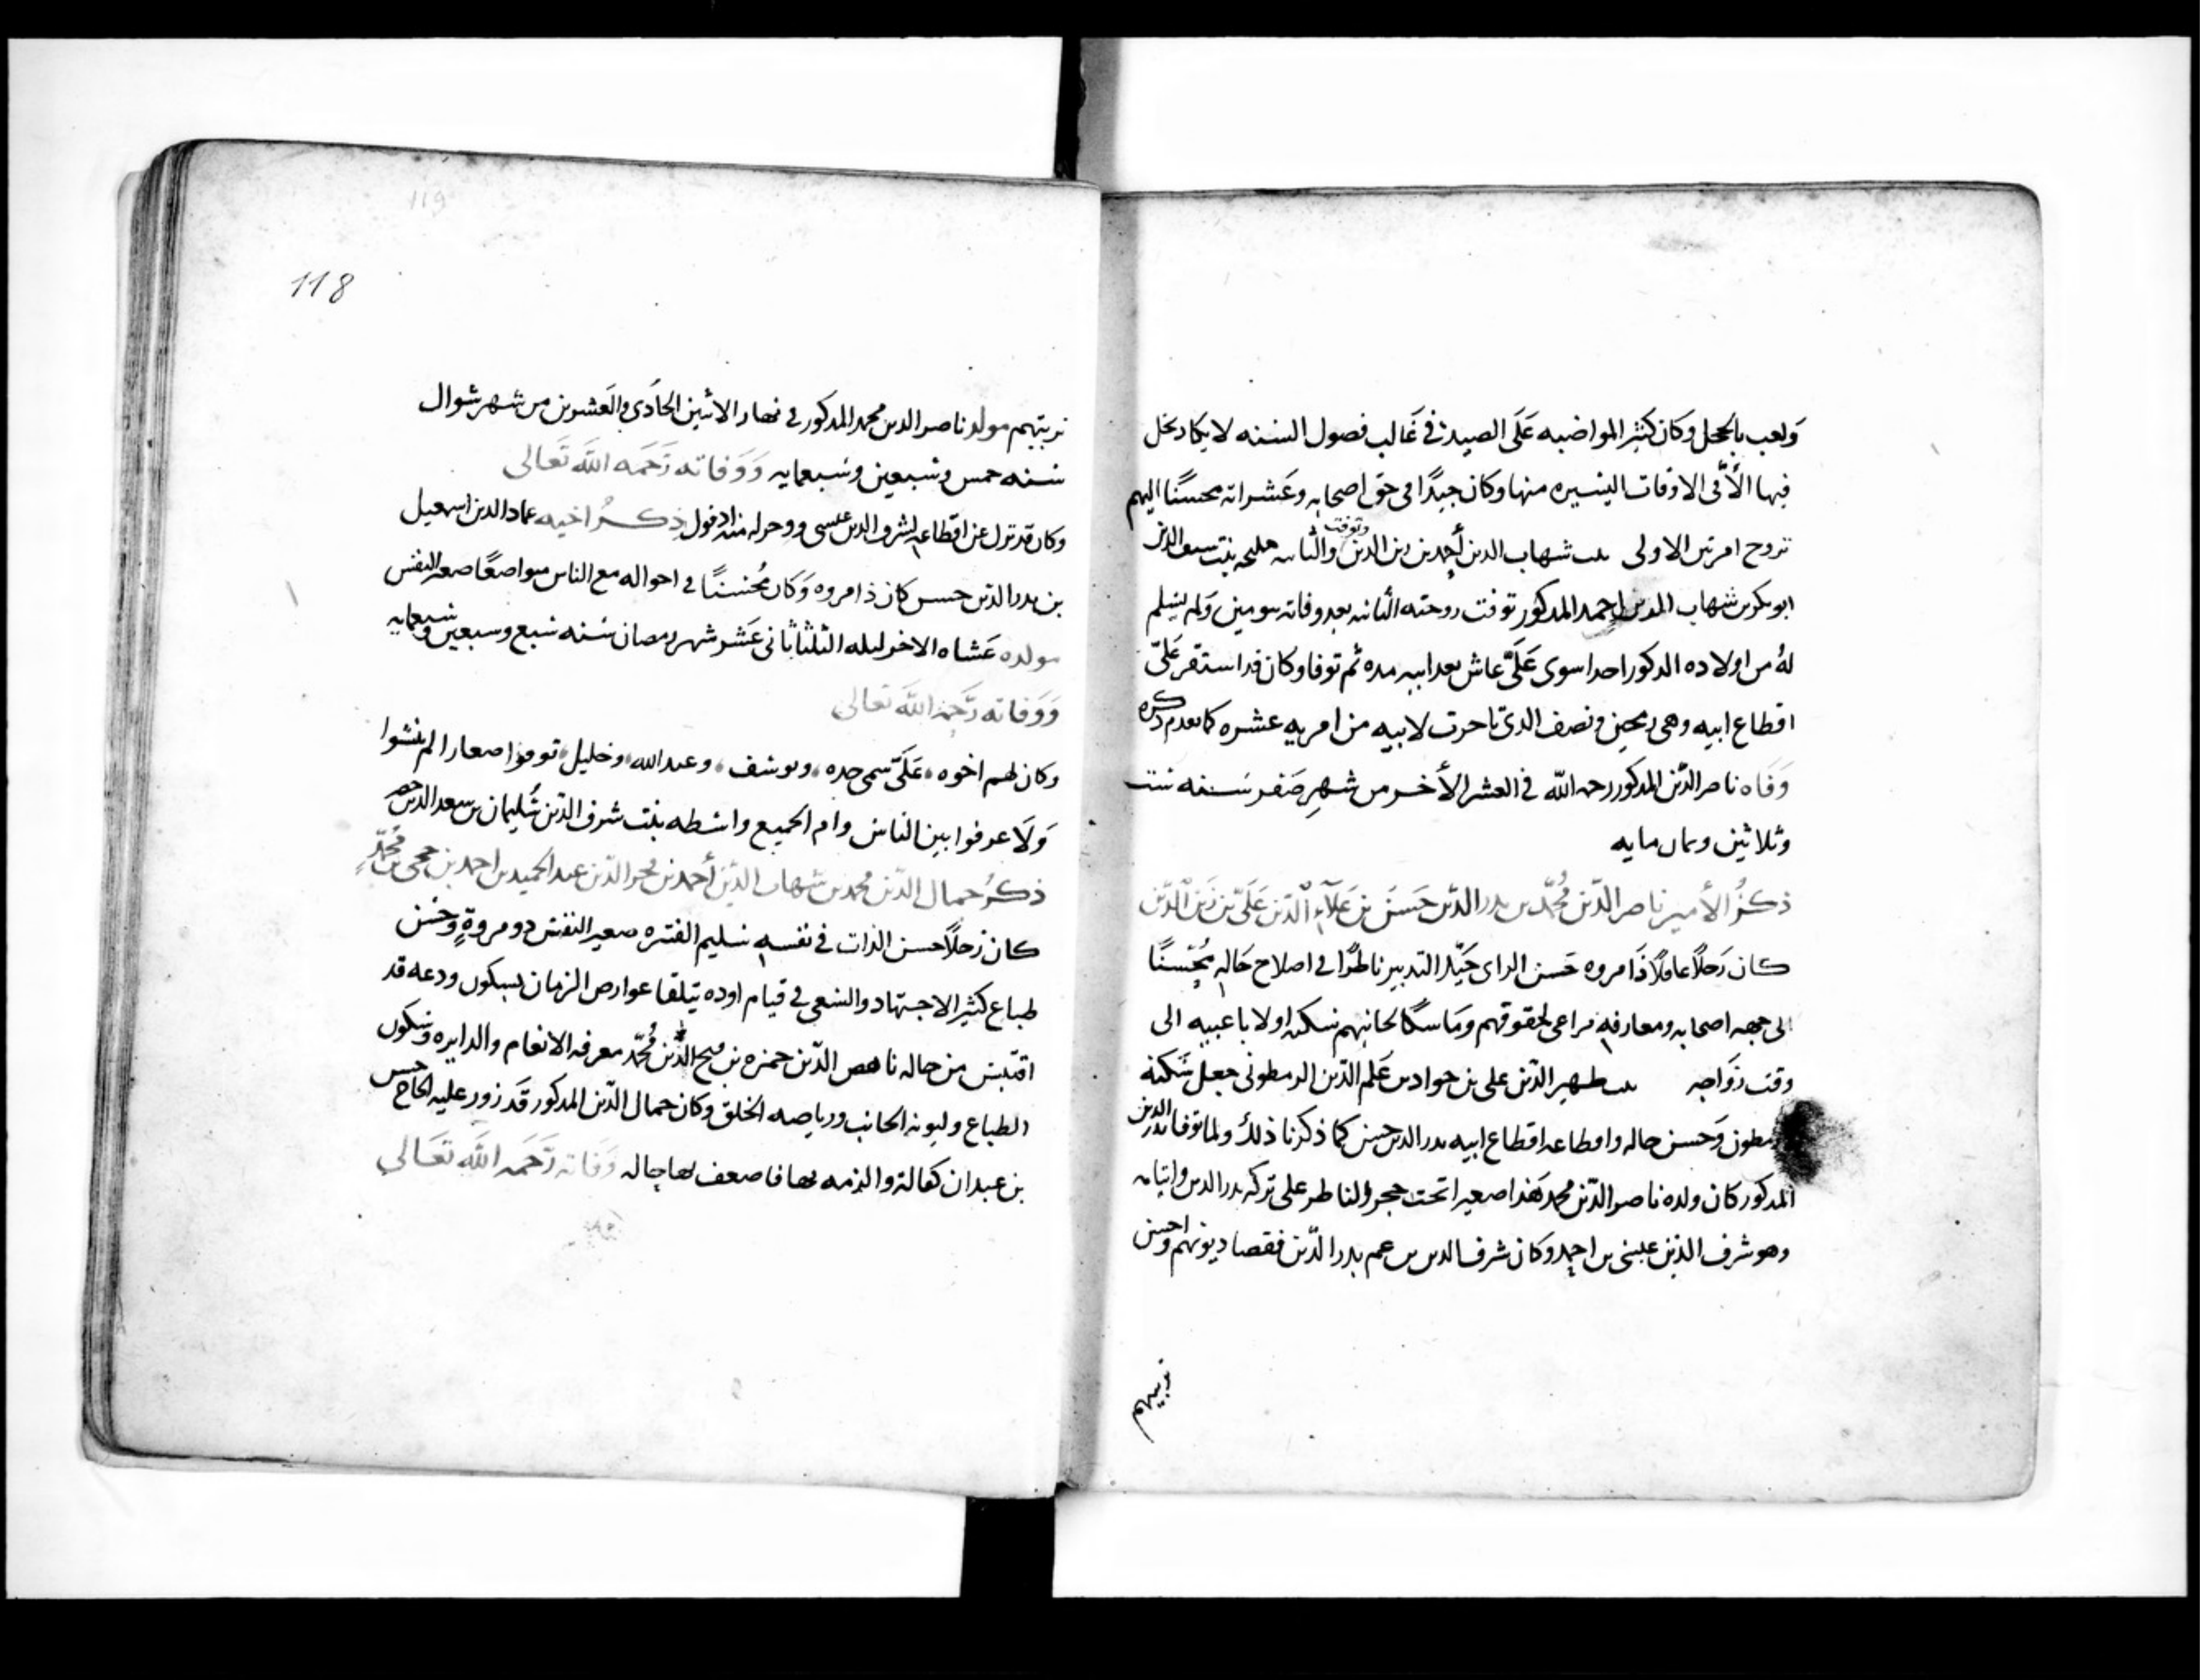 ولعب بالحجل وكان كثير المواضبه على الصيد في غالب فصول السنه لا يكاد يخل
فيها الا في الاوقات اليسيره منها وكان جيدا في حق اصحابه وعشرانه محسنا اليهم
تزوج امرتين الاولى بنت شهاب الدين أحمد بن زين الدين وتوفت والثانيه مليحه بنت سيف الدين
ابو بكر بن شهاب الدين احمد المذكور توفت زوجته الثانيه بعد وفاته بيومين ولم يسلم
له من اولاده الذكور احدا سوى على عاش بعد ابيه مده ثم توفا وكان قد استقر على
اقطاع ابيه وهى رمحين ونصف الذي تاخرت لابيه من امريه عشره كما تقدم ذكره
وفاه ناصر الدين المذكور رحمه الله في العشر الأخر من شهر صفر سنه ست
وثلاثين وثمان مايه
ذكر الأمير ناصر الدين محمد بن بدر الدين حسن بن علاء الدين على بن زين الدين
كان رجلا عاقلا ذا مروه حسن الراى جيد التدبير ناظرا في اصلاح حاله محسنا
الى جهه اصحابه ومعارفه مراعى لحقوقهم وماسكا لجانبهم سكنه اولا باعبيه الى
وقت زواجه بنت ظهير الدين على بن جواد بن علم الدين الرمطونى جعل سكنه
رمطون وحسن حاله واقطاعه اقطاع ابيه بدر الدين حسن كما ذكرنا ذلك ولما توفا بدر الدين
المذكور كان ولده ناصر الدين محمد هذا صغيرا تحت حجر والناظر على تركه بدر الدين وايتامه
وهو شرف الدين عيسى بن احمد وكان شرف الدين بن عم بدر الدين فقضا ديونهم واحسن
تربيتهم
119
118
تربيتهم مولد ناصر الدين محمد المذكور في نهار الاثنين الحادى والعشرين من شهر شوال
سنه خمس وسبعين وسبعمايه ووفاته رحمه الله تعالى
وكان قد نزل عن اقطاعه لشرف الدين عيسى ذكر اخيه عماد الدين اسمعيل
بن بدر الدين حسن كان ذا مروه وكان محسنا في احواله مع الناس متواضعا صغير النفس
مولده عشاء الاخر ليله الثلثا ثاني عشر شهر رمضان سنه سبع وسبعين وسبعمايه
ووفاته رحمه الله تعالى
وكان لهم اخوه على سمى جده ويوسف وعبد الله وخليل توفوا صغارا لم ينشوا
ولا عرفوا بين الناس وام الجميع واسطه بنت شرف الدين سليمان بن سعد الدين خضر
ذكر جمال الدين محمد بن شهاب الدين أحمد بن فخر الدين عبد الحميد بن احمد بن حجى بن محمد
كان رجلا حسن الذات في نفسه سليم الفتره صغير النفس ذو مروة وحسن
طباع كثير الاجتهاد والسعى في قيام اوده يتلقا عوارض الزمان بسكون ودعه قد
اقتبس من خاله ناهض الدين حمزه بن فتح الدين محمد معرفه الانغام والدايره وسكون
الطباع وليونه الجانب ورياضه الخلق وكان جمال الدين المذكور قد زور عليه الحاج حسن
بن عبدان كفالة والزمه بها فاضعف بها حاله وفاته رحمه الله تعالى